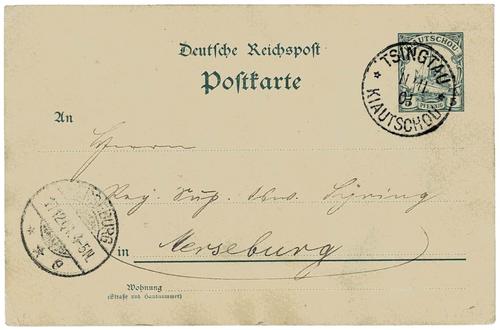 Deutsche Reichspost
Postkarte
KIAUTSCHOU
PFENNIG
TSINGTAU
KIAUTSCHOU
An
Herrn
Reg. Sup.
in Merseburg
Wohnung
(Straße und Hausnummer)